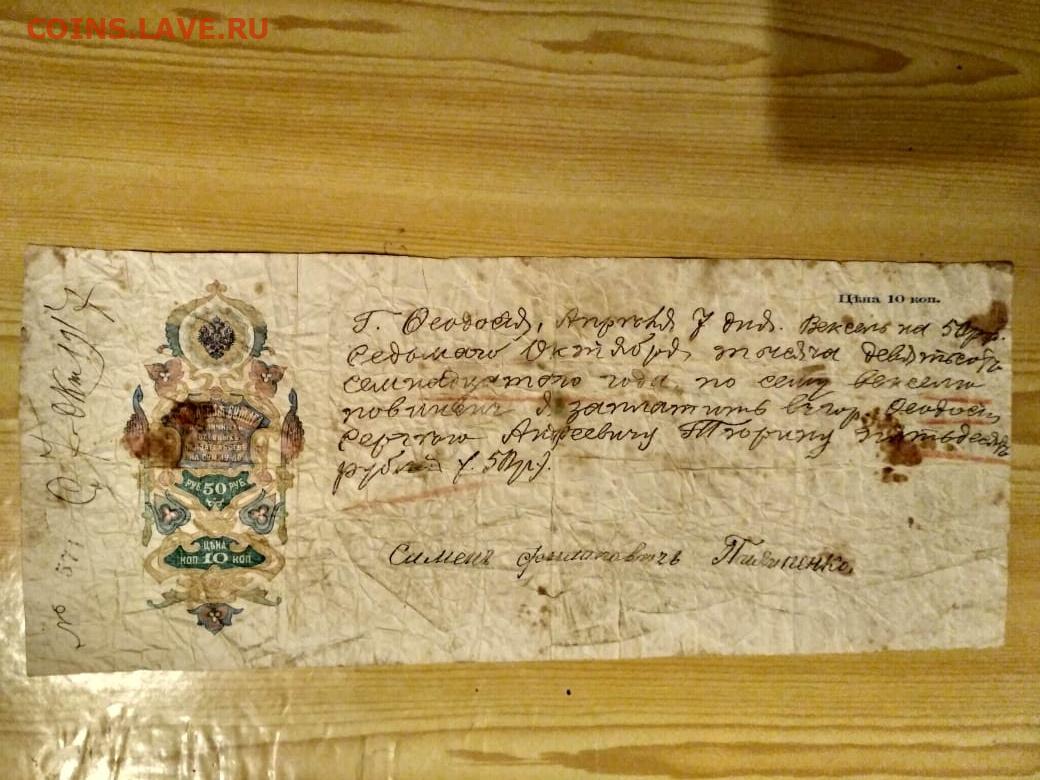 COINS.LAVE.RU
Цѣна 10 коп.
Г. Ѳеодосія, Апрѣля 7 дня. Вексель на 50 р.
Седьмаго Октября тысяча девятьсотъ
семнадцатого года по сему векселю
повиненъ я заплатить въ гор. Ѳеодосіи
Сергѣю Андреевичу Тюрину пятьдесятъ
рублей (50 р.)
Пилипенко
Окт 1917
№ 57
НА СУМ
РУБ. 50 РУБ.
ЦѢНА
КОП. 10 КОП.